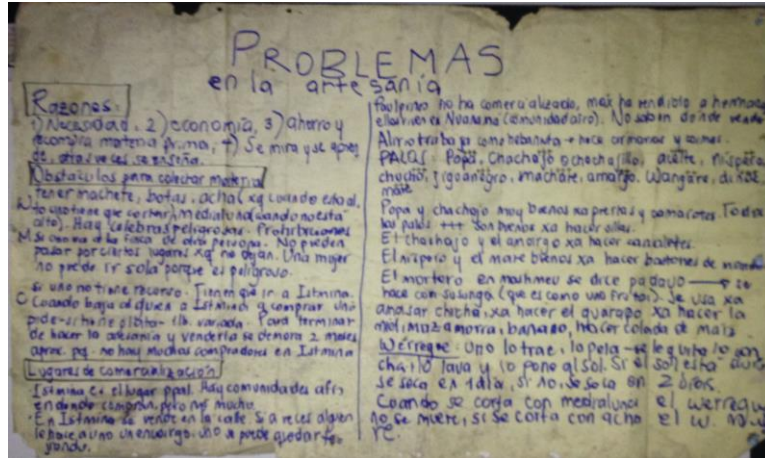 PROBLEMAS
en la artesanía
Razones:
1) Necesidad, 2) economía, 3) ahorro y
materia prima, 4) Se mira y se
otras veces se enseña.
Obstáculos para colectar material
tener machete, botas, acha( xq cuando está al
to uno tiene que cortar), medialuna (cuando no está
alto). Hay culebras peligrosas. Prohibiciones
M Si camina a la finca de otra persona. No pueden
pasar por ciertos lugares xq no dejan. Una mujer
no puede ir sola porque es peligroso.
si uno no tiene recurso. Tienen que ir a Istmina.
C Cuando baja al duica a Istmina y comprar uno
pide-si tiene plata- lb. variada. Para terminar
de hacer la artesanía y venderla se demora 2 meses
aprox. pq. no hay muchos compradores en Istmina
Lugares de comercialización
Istmina es el lugar ppal. Hay comunidades afro
en donde compran, pero no mucho.
En Istmina se vende en la calle. Si a veces alguien
le hace a uno un encargo, uno se puede quedar
no ha comercializado, mas ha vendido a
ellos viven en (comunidad afro). No saben donde
trabaja como ebanista - hace armarios y
PALOS: Popa, Chachajo o chachajillo, aceite, níspero,
machare, amargo, Wangare,
mare
Popa y chachajo muy buenos xa puertas y camarotes. Todos
los palos +++ son buenos xa hacer sillas.
El chachajo y el amargo xa hacer canaletes.
El níspero y el mare buenos xa hacer bastones de mando
El mortero en se dice padayo → se
hace con (que es como una fruta). Se usa xa
amasar chicha, xa hacer el guarapo xa hacer la
miel, mazamorra, banano, hacer colada de maíz
Werregue: Uno lo trae, lo pela - se le quita lo
lo lava y lo pone al sol. Si el sol está duro
se seca en 1 día, si no, se seca en 2 días.
Cuando se corta con medialuna el werregue
no se muere, si se corta con acha el W. m
re.